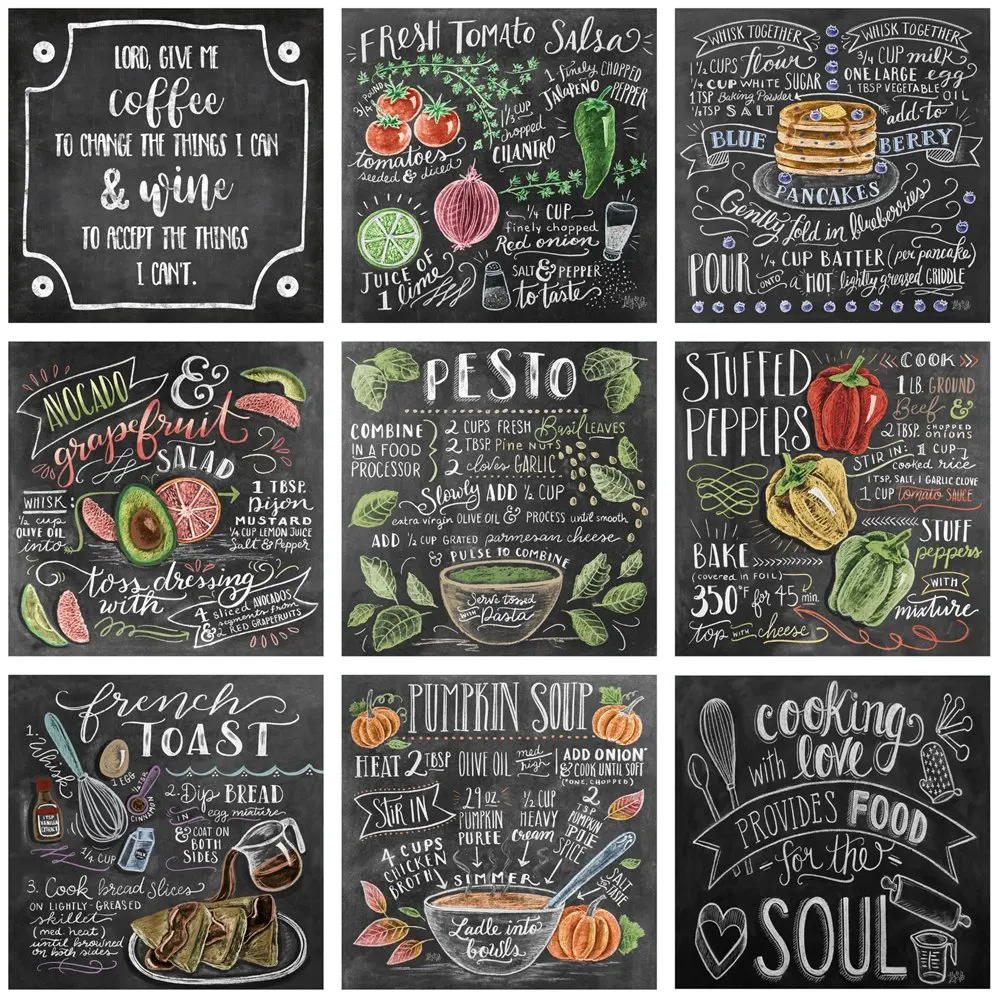 LORD, GIVE ME
coffee
TO CHANGE THE THINGS I CAN
& wine
TO ACCEPT THE THINGS
I CAN'T.
FRESH TOMATO SALSA
3/4 POUND
tomatoes
seeded & diced
1/3 CUP
chopped
CILANTRO
1 finely CHOPPED
JALAPEÑO PEPPER
JUICE OF
1 lime
1/4 CUP
finely chopped
Red onion
SALT & PEPPER
to taste
WHISK TOGETHER
1 1/2 CUPS flour
1/4 CUP WHITE SUGAR
1 TSP Baking Powder
1/2 TSP SALT
WHISK TOGETHER
3/4 CUP milk
ONE LARGE egg
1 TBSP VEGETABLE OIL
add to
BLUE BERRY
PANCAKES
Gently fold in blueberries
POUR 1/4 CUP BATTER (per pancake)
ONTO a HOT lightly greased GRIDDLE
AVOCADO &
grapefruit
SALAD
WHISK
1/2 cup
OLIVE OIL
into
1 TBSP.
Dijon
MUSTARD
1/4 CUP LEMON JUICE
Salt & Pepper
toss dressing
with
4 sliced AVOCADOS
& segments from
2 RED GRAPEFRUITS
PESTO
COMBINE
IN A FOOD
PROCESSOR
2 CUPS FRESH Basil LEAVES
2 TBSP. Pine NUTS
2 cloves GARLIC
Slowly ADD 1/2 CUP
extra virgin OLIVE OIL & PROCESS until smooth
ADD 1/2 CUP GRATED parmesan cheese
& PULSE TO COMBINE
Serve tossed
WITH Pasta
STUFFED
PEPPERS
COOK
1 LB. GROUND
Beef &
2 TBSP. CHOPPED onions
STIR IN: 1 CUP
cooked rice
1 TSP. SALT, 1 GARLIC CLOVE
1 CUP tomato SAUCE
STUFF
peppers
WITH
mixture
BAKE
(covered in FOIL)
350°F for 45 min.
top WITH cheese
french
TOAST
1. Whisk
1 EGG
1 TSP
VANILLA
EXTRACT
1/4 CUP
2. Dip BREAD
IN egg mixture
& COAT ON
BOTH
SIDES
3. Cook bread slices
ON LIGHTLY-GREASED
skillet
(med. heat)
until browned
on both sides
PUMPKIN SOUP
HEAT 2 TBSP OLIVE OIL med high
ADD ONION
& COOK UNTIL SOFT
(ONE, CHOPPED)
STIR IN
4 CUPS
CHICKEN
BROTH
29 oz.
PUMPKIN
PUREE
1/2 CUP
HEAVY
cream
2 TSP
PUMPKIN
PIE
SPICE
SALT
TO TASTE
SIMMER
Ladle into
bowls
cooking
with love
PROVIDES FOOD
for the
SOUL